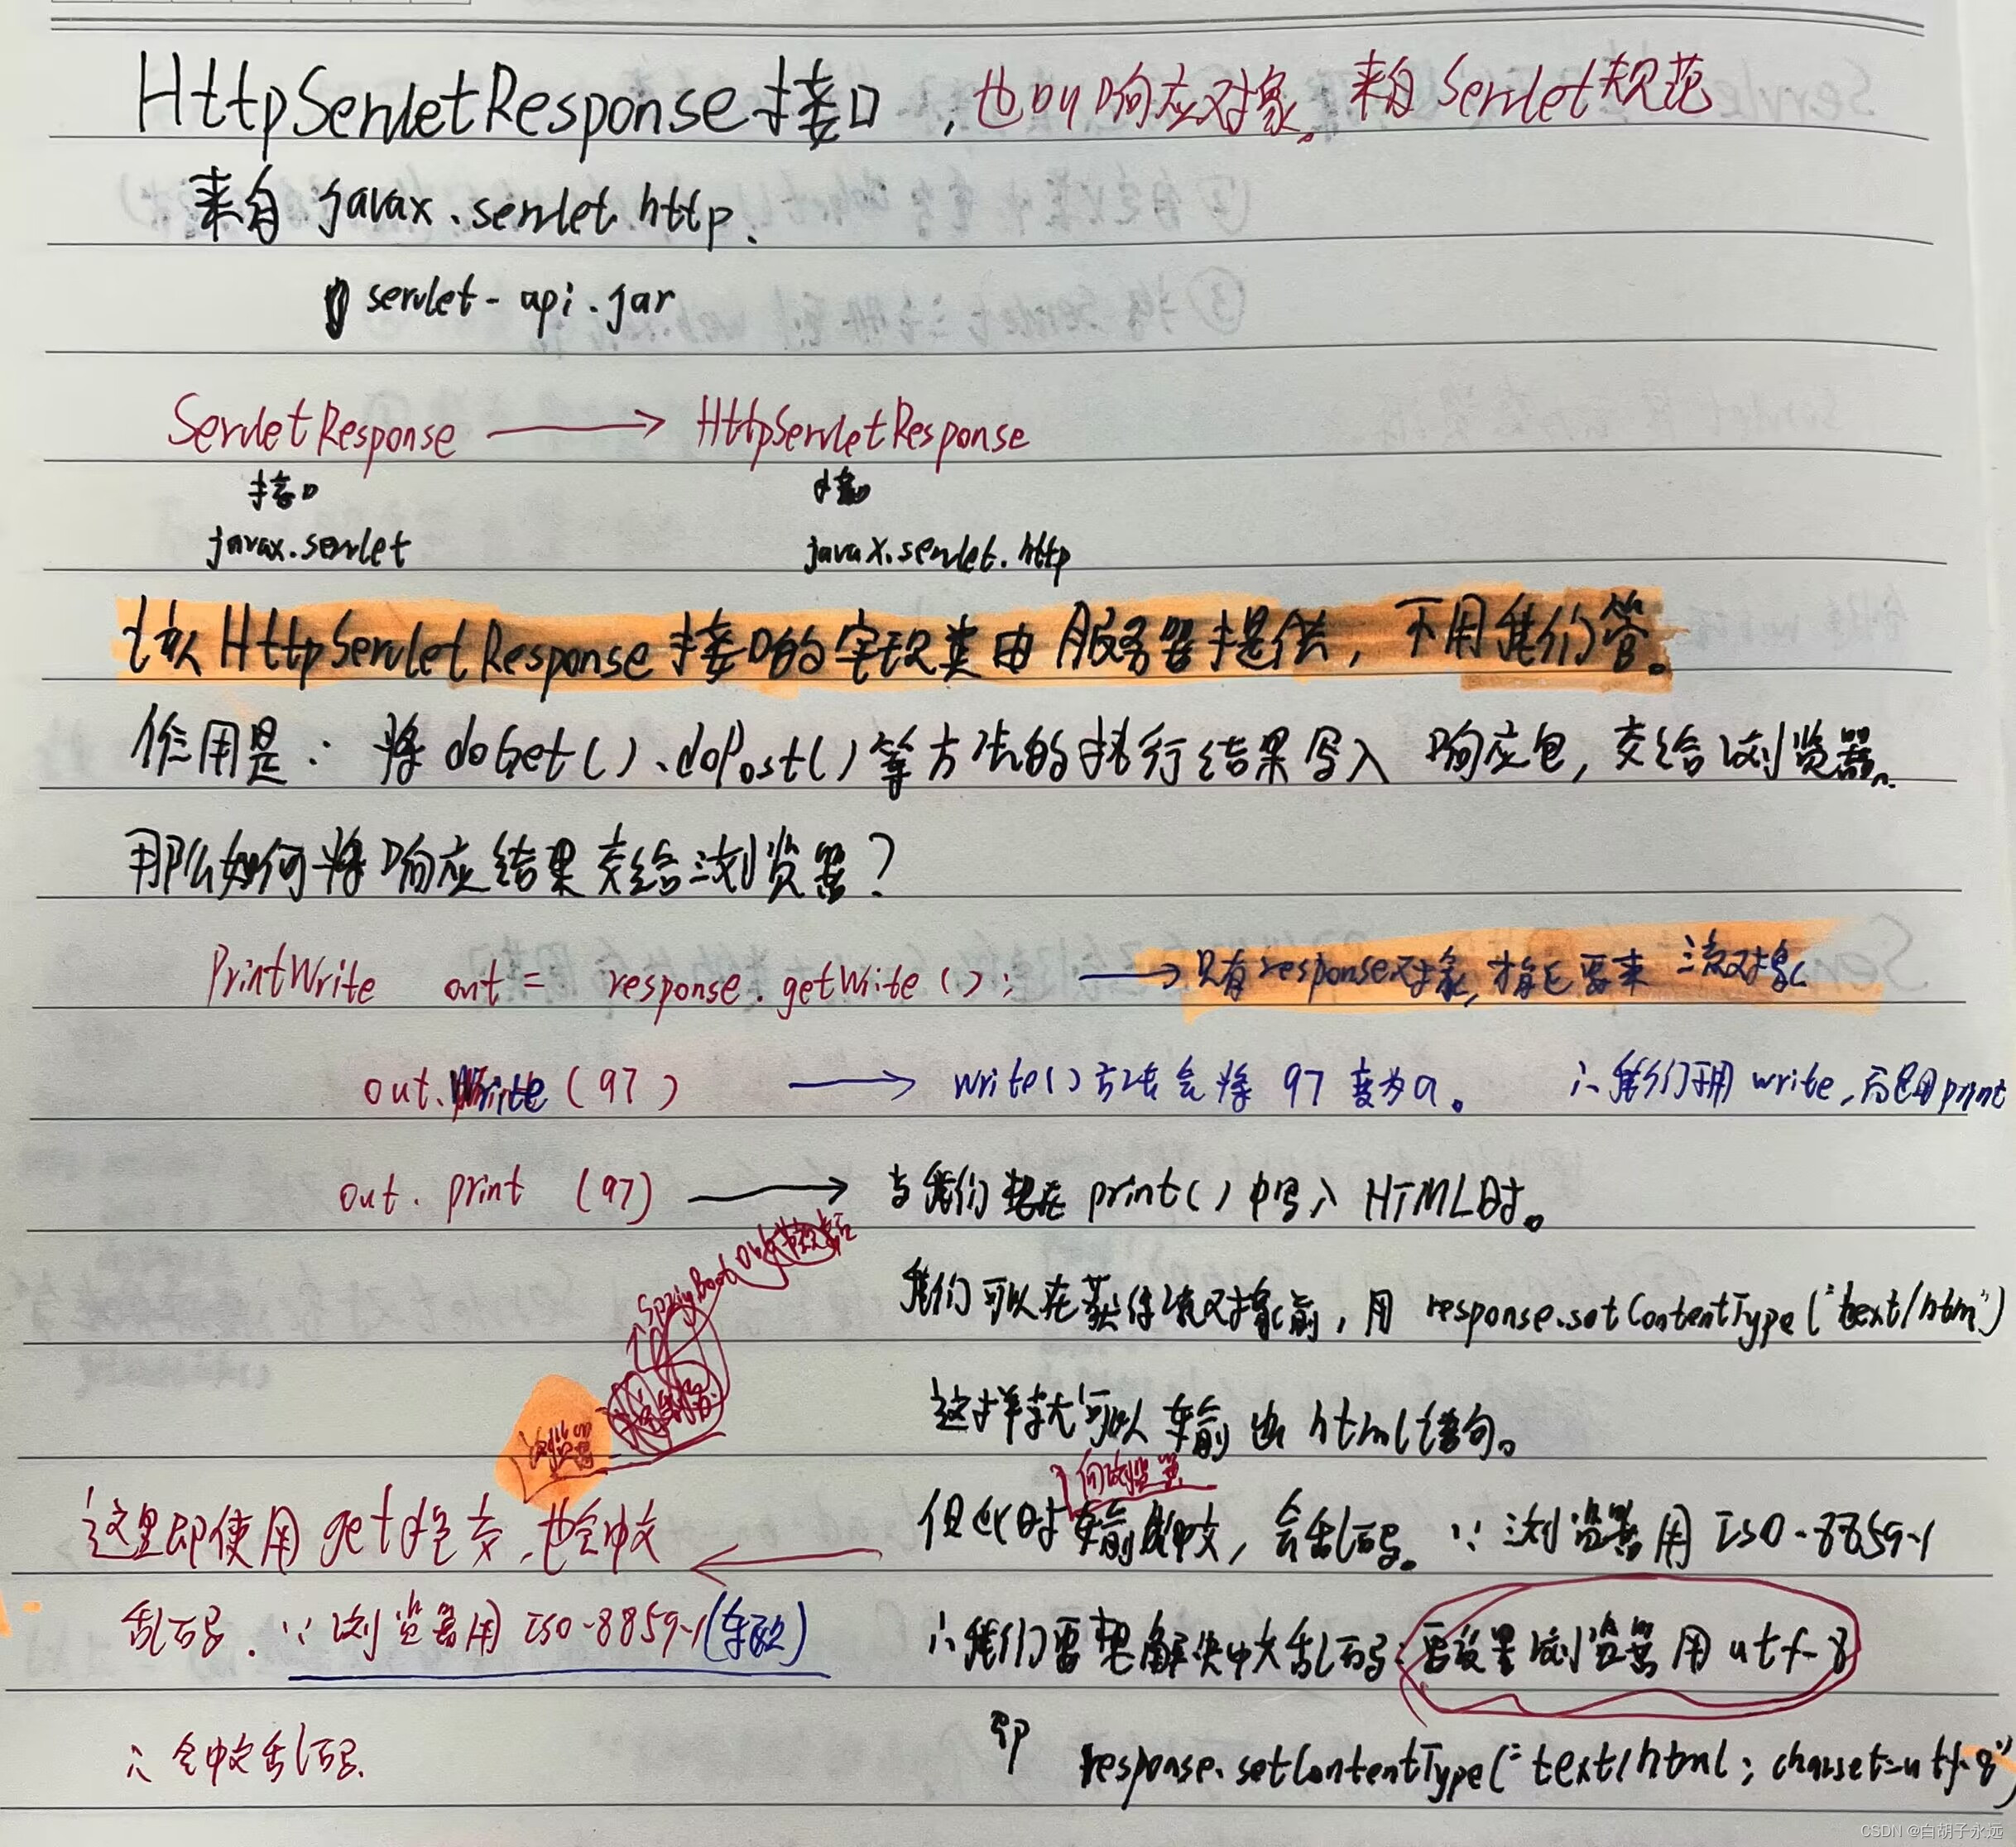 HttpServletResponse接口，也叫响应对象。来自Servlet规范
来自 javax.servlet.http.
servlet-api.jar
ServletResponse → HttpServletResponse
接口 接口
javax.servlet javax.servlet.http
该HttpServletResponse接口的实现类由服务器提供，不用我们管。
作用是：将doGet()、doPost()等方法的执行结果写入响应包，交给浏览器。
那么如何将响应结果交给浏览器？
PrintWrite out = response.getWrite(); → 只有response对象，才能要来流对象
out.Write(97) → write()方法会将97变为a。 ∴我们不用write，而用print
out.print(97) → 当我们想在print()中写入HTML时。
SpringBoot
我们可以在获得流对象前，用response.setContentType("text/htm")
这样就可以输出html语句。
浏览器
向浏览器
但此时输出中文，会乱码。∵浏览器用ISO-8859-1
这里即使用get提交，也会中文
乱码。∵浏览器用ISO-8859-1(默认)
∴我们要想解决中文乱码，要设置浏览器用utf-8
∴会中文乱码.
即 response.setContentType("text/html; charset=utf-8")
CSDN @白胡子永远